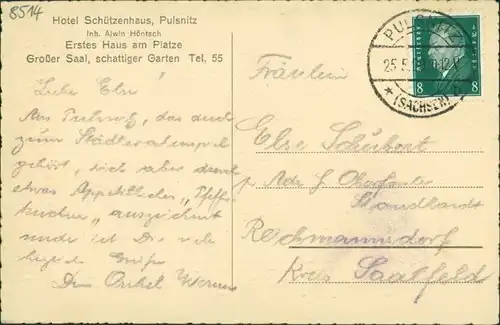 8514
Hotel Schützenhaus, Pulsnitz
Inh. Alwin Höntsch
Erstes Haus am Platze
Großer Saal, schattiger Garten Tel. 55
PULSNITZ
25.5.
(SACHSEN)
8 8
Fräulein
Liebe Else!
Aus Pulsnitz, das auch
zum Städteratespiel
gehört, sich aber durch
etwas Appetitliches „Pfeffer
kuchen“ auszeichnet
sende ich Dir viele
liebe Grüße
Dein Onkel Werner
Else Schubert
Adr. Oberförster
Reichmannsdorf
Kreis Saalfeld